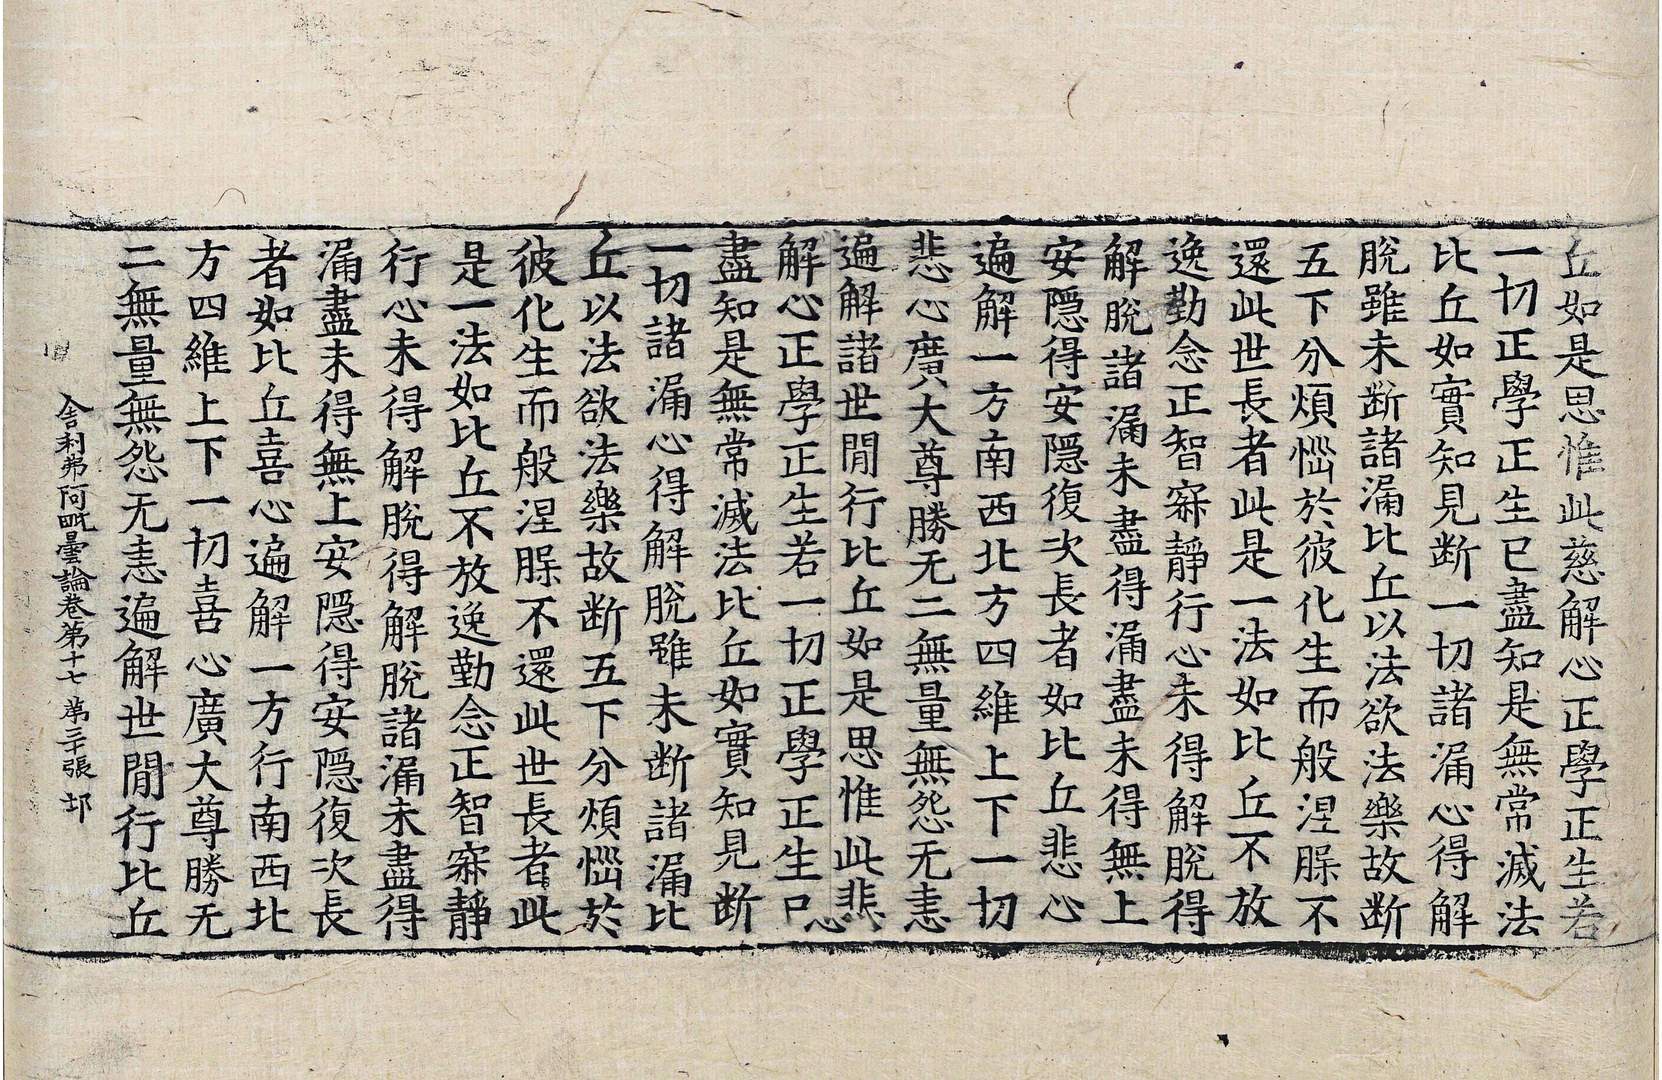 丘如是思惟此慈解心正學正生若
一切正學正生已盡知是無常滅法
比丘如實知見斷一切諸漏心得解
脫雖未斷諸漏比丘以法欲法樂故斷
五下分煩惱於彼化生而般涅槃不
還此世長者此是一法如比丘不放
逸勤念正智寂靜行心未得解脫得
解脫諸漏未盡得漏盡未得無上
安隱得安隱復次長者如比丘悲心
遍解一方南西北方四維上下一切
悲心廣大尊勝无二無量無怨无恚
遍解諸世間行比丘如是思惟此悲
解心正學正生若一切正學正生已
盡知是無常滅法比丘如實知見斷
一切諸漏心得解脫雖未斷諸漏比
丘以法欲法樂故斷五下分煩惱於
彼化生而般涅槃不還此世長者此
是一法如比丘不放逸勤念正智寂靜
行心未得解脫得解脫諸漏未盡得
漏盡未得無上安隱得安隱復次長
者如比丘喜心遍解一方行南西北
方四維上下一切喜心廣大尊勝无
二無量無怨无恚遍解世間行比丘
舍利弗阿毗曇論卷第十七 第三十張